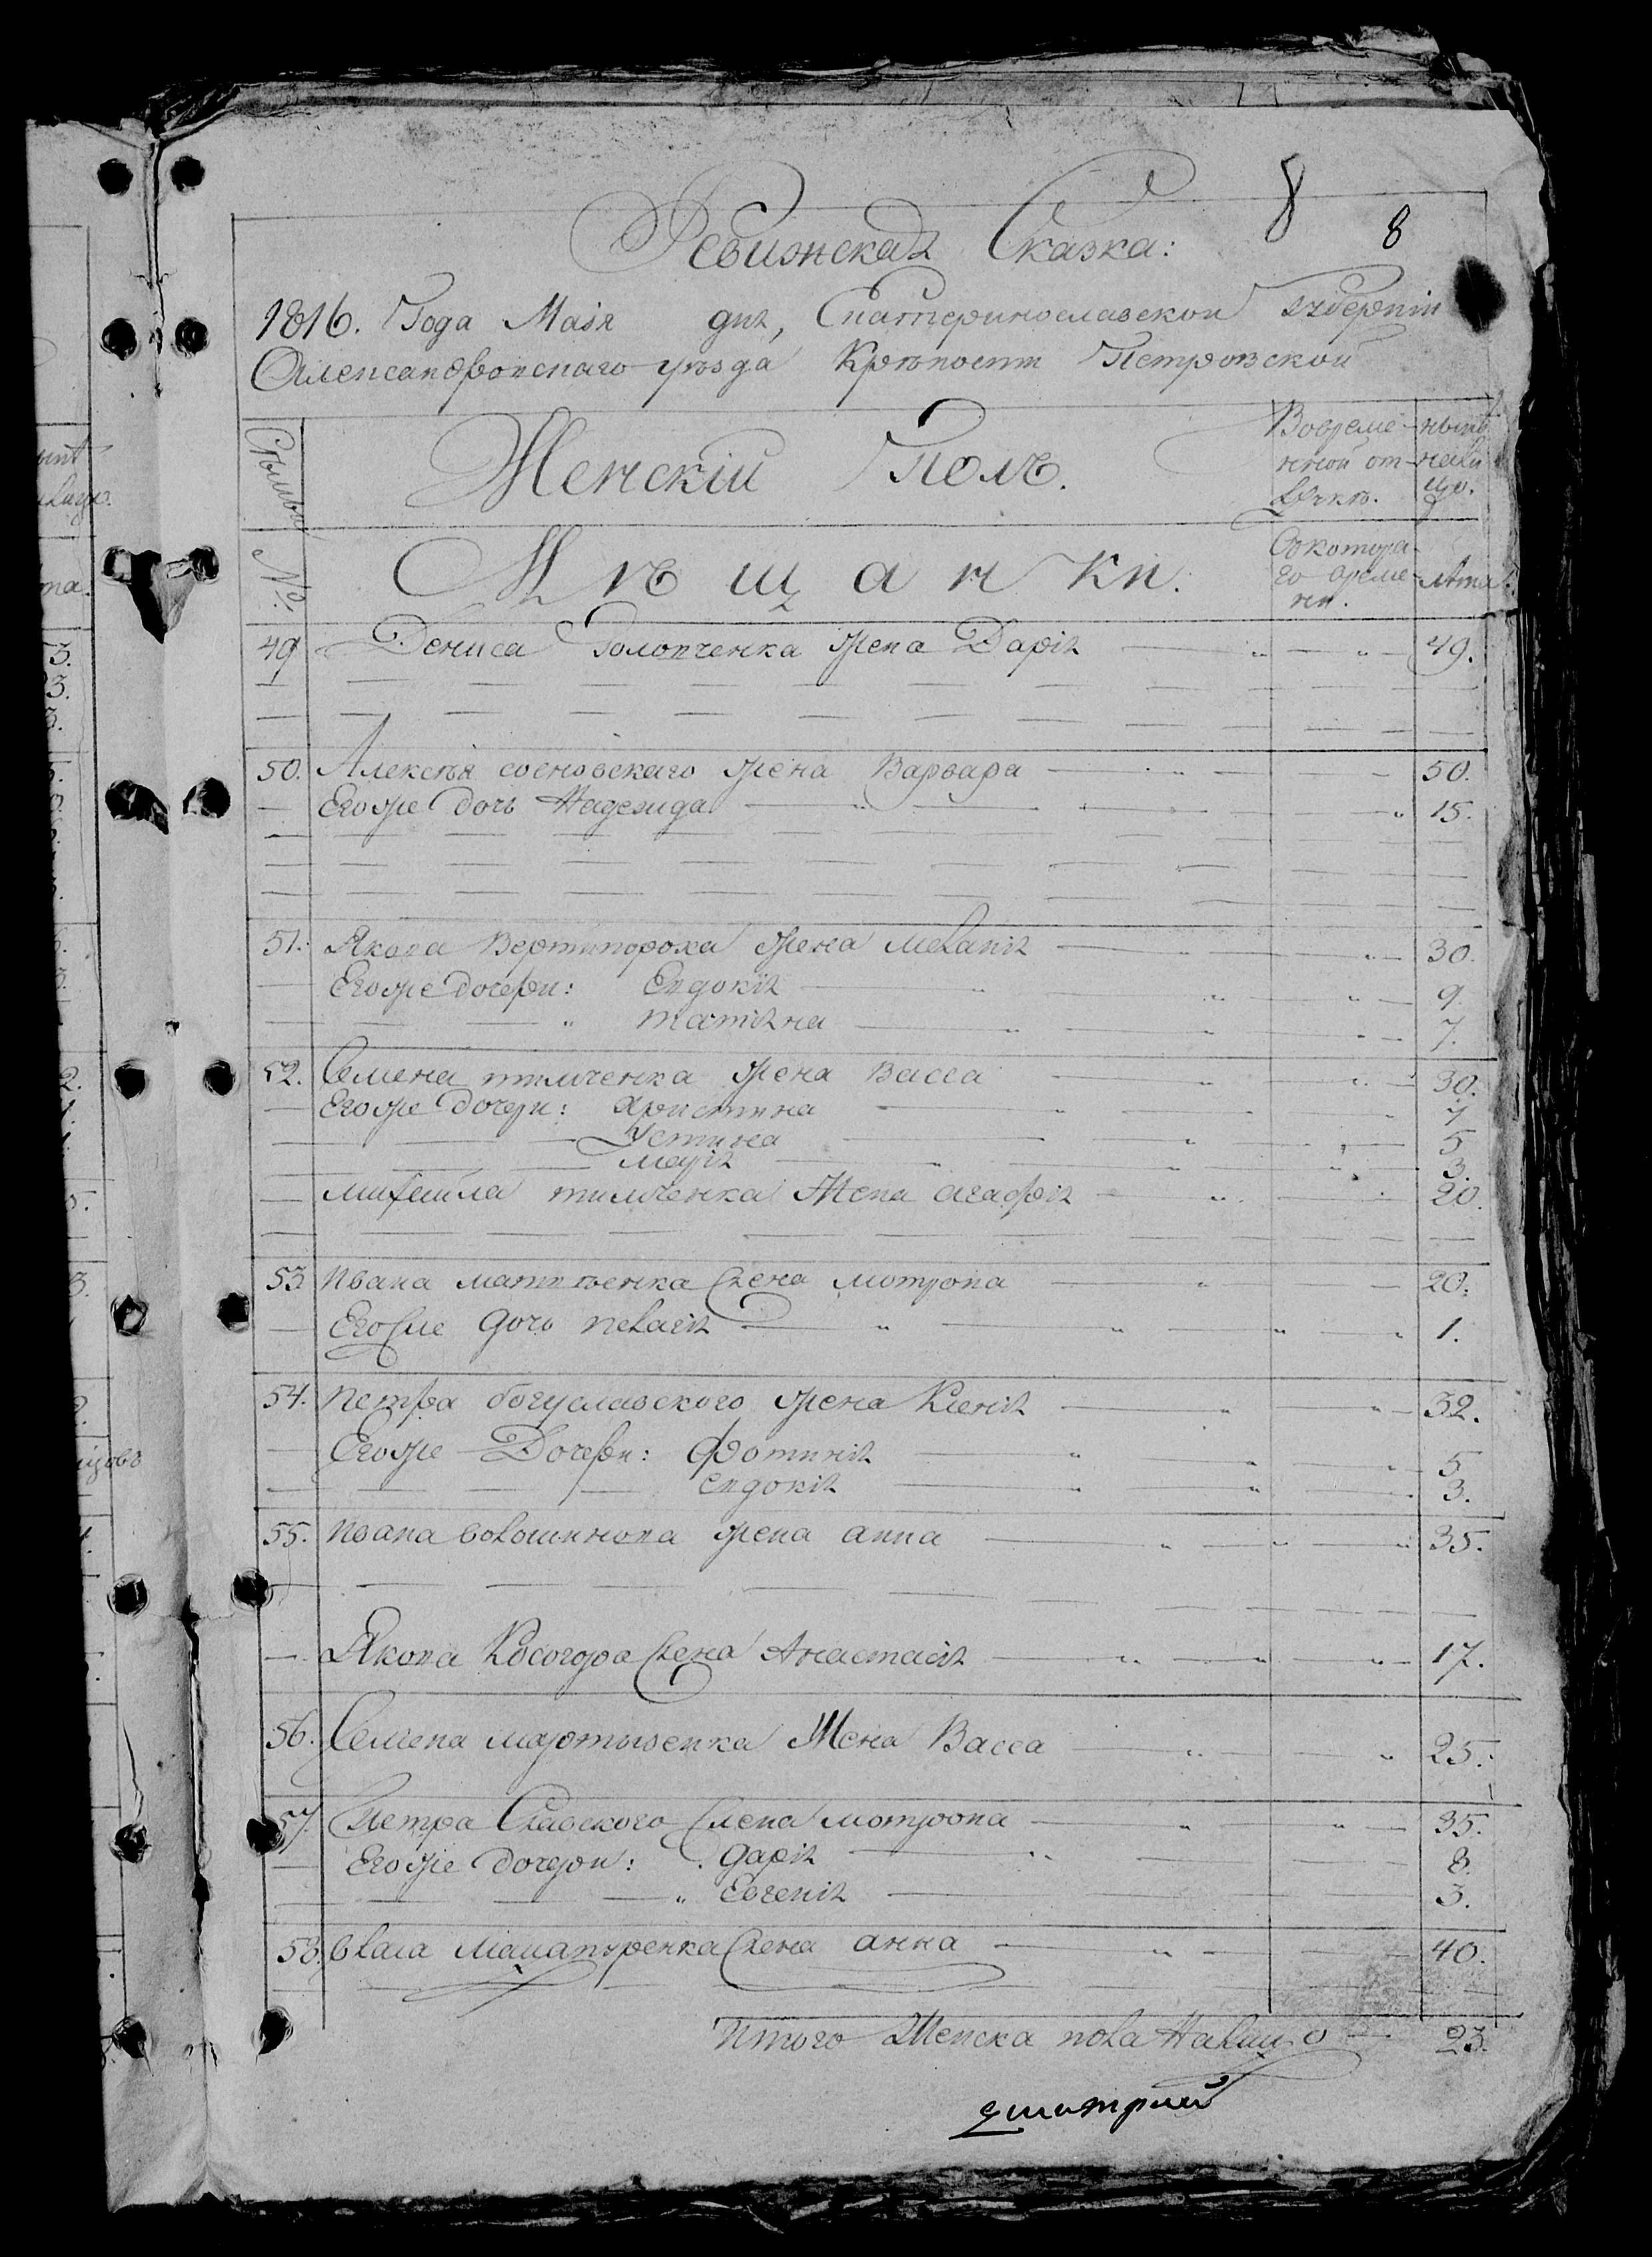 8 8
Ревижская Сказка:
1816. Года Маія дня, Екатеринославской губерніи
Александровскаго уѣзда Крѣпости Петровской
Семьи Женскій Полъ. Вовреме- нынѣ
нной от- нали
лучкѣ. цо.
№: Мѣщанки. Скотора-
го време- лѣта.
ни.
49 Дениса Голопченка жена Дарія 49.
50. Алексѣя сосновскаго жена Варвара 50.
Егоже дочь Надежида 15.
51. Якова Вертипороха жена меланія 30.
Егоже дочери: Евдокія 9.
татіяна 7.
52. Семена тимченка жена Васса 30.
Егоже дочери: Христина 7
Устина 5
марія 3.
михаила тимченка Жена агафія 20.
53 Ивана матвѣенка жена мотрона 20.
Егоже дочь пелагія 1.
54. Петра богуславского жена Ксенія 32.
Егоже Дочери: Фотинія 5
евдокія 3.
55. Ивана волошинова жена анна 35.
Якова Косогора жена Анастасія 17.
56. Семена мартыненка Жена Васса 25.
57 Петра Славского жена мотрона 35.
Егоже дочери: дарія 8.
Евгенія 3.
58. власа жена анна 40.
Итого Женска пола Налицо 23.